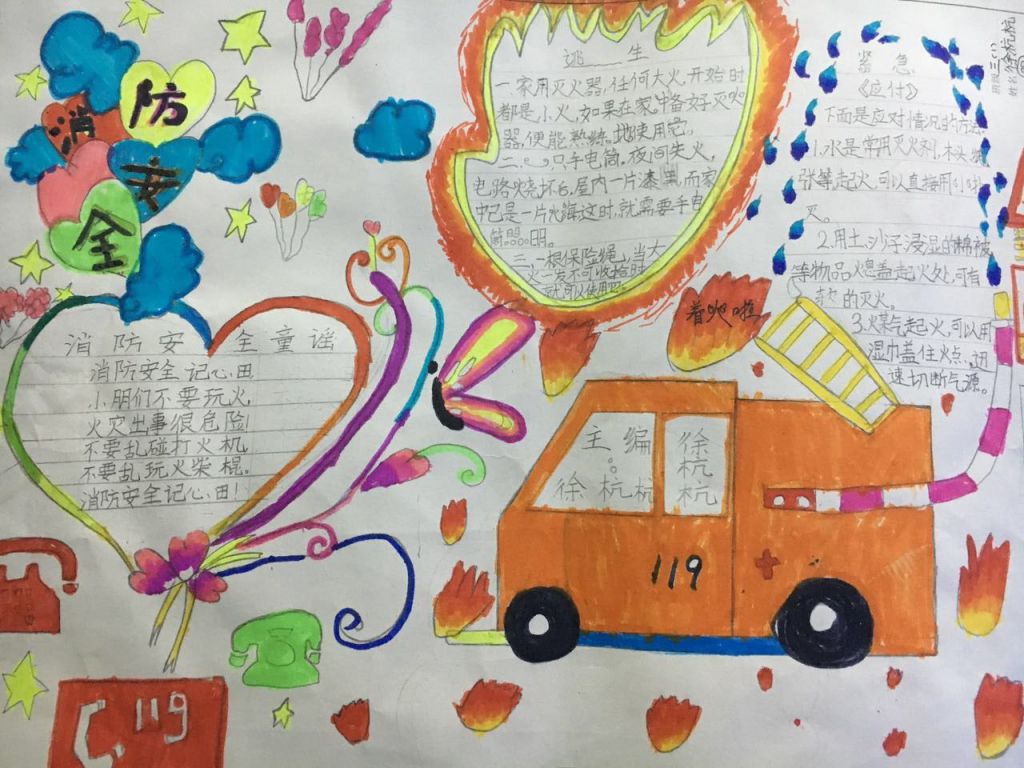 消防安全
消防安全童谣
消防安全记心田
小朋们不要玩火
火灾出事很危险
不要乱碰打火机
不要乱玩火柴棍。
消防安全记心田!
逃生
一.家用灭火器,任何大火,开始时
都是小火,如果在家准备好灭火
器,便能熟练地使用它。
二.一只手电筒。夜间失火,
电路烧坏后,屋内一片漆黑,而家
中已是一片火海这时,就需要手电
筒照明。
三.一根保险绳,当大
火一发不可收拾时
就可以使用
着火啦
紧急
《应付》
下面是应对情况的方法
1.水是常用灭火剂,木头
张等起火,可以直接用水
灭。
2.用土,沙子浸湿的棉被
等物品火覆盖起火处,可有
效的灭火。
3.煤气起火,可以用
湿巾盖住火点,迅
速切断气源。
主编:
徐杭杭
徐杭杭
119
119